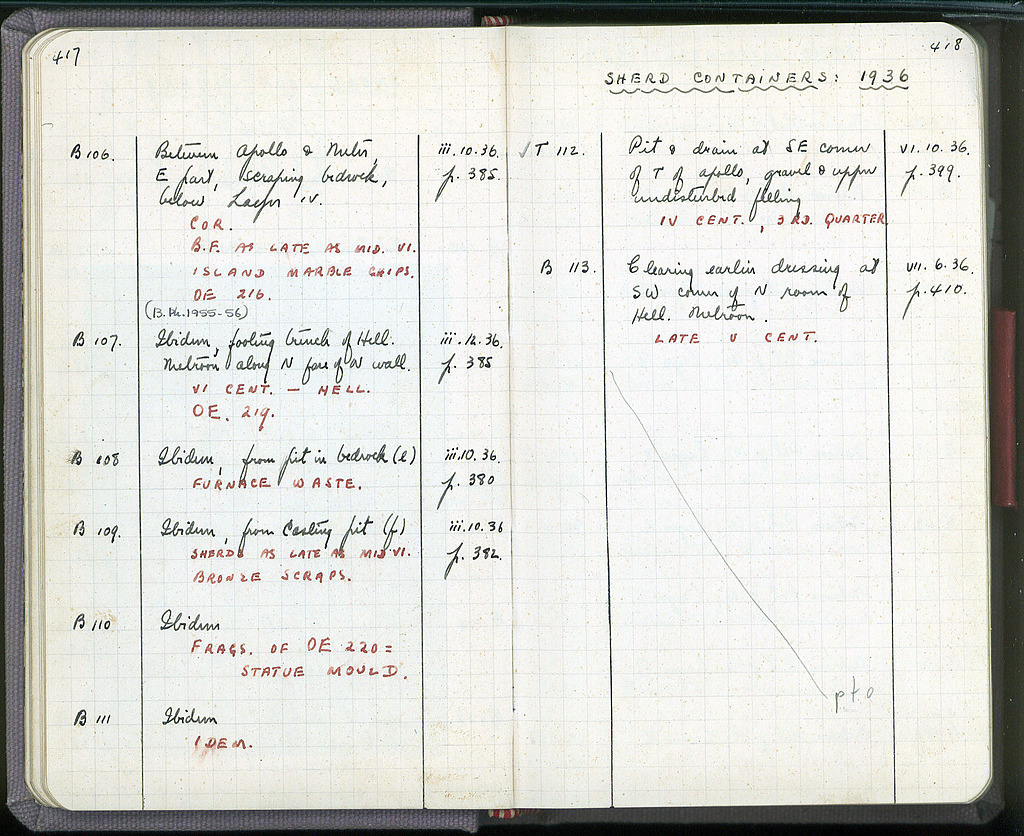 417
B 106. Between Apollo & Metr., iii.10.36.
E part, scraping bedrock, p. 385.
below Layer IV.
COR.
B.F. AS LATE AS MID. VI.
ISLAND MARBLE CHIPS.
OE 216.
(B.Ph.1955-56)
B 107. Ibidem, footing trench of Hell. iii.12.36.
Metroon along N face of N wall. p. 385
VI CENT. — HELL.
OE. 219.
B 108 Ibidem, from pit in bedrock (e) iii.10.36.
FURNACE WASTE. p. 380
B 109. Ibidem, from Casting pit (f) iii.10.36
SHERDS AS LATE AS MID VI. p. 382.
BRONZE SCRAPS.
B 110 Ibidem
FRAGS. OF OE 220 =
STATUE MOULD.
B 111 Ibidem
IDEM.
418
SHERD CONTAINERS: 1936
✓ T 112. Pit & drain at SE corner VI.10.36.
of T of Apollo, gravel & upper p. 399.
undisturbed filling
IV CENT., 3RD. QUARTER
B 113. Clearing earlier dressing at VII.6.36.
SW corner of N room of p. 410.
Hell. Metroon.
LATE V CENT.
p t o